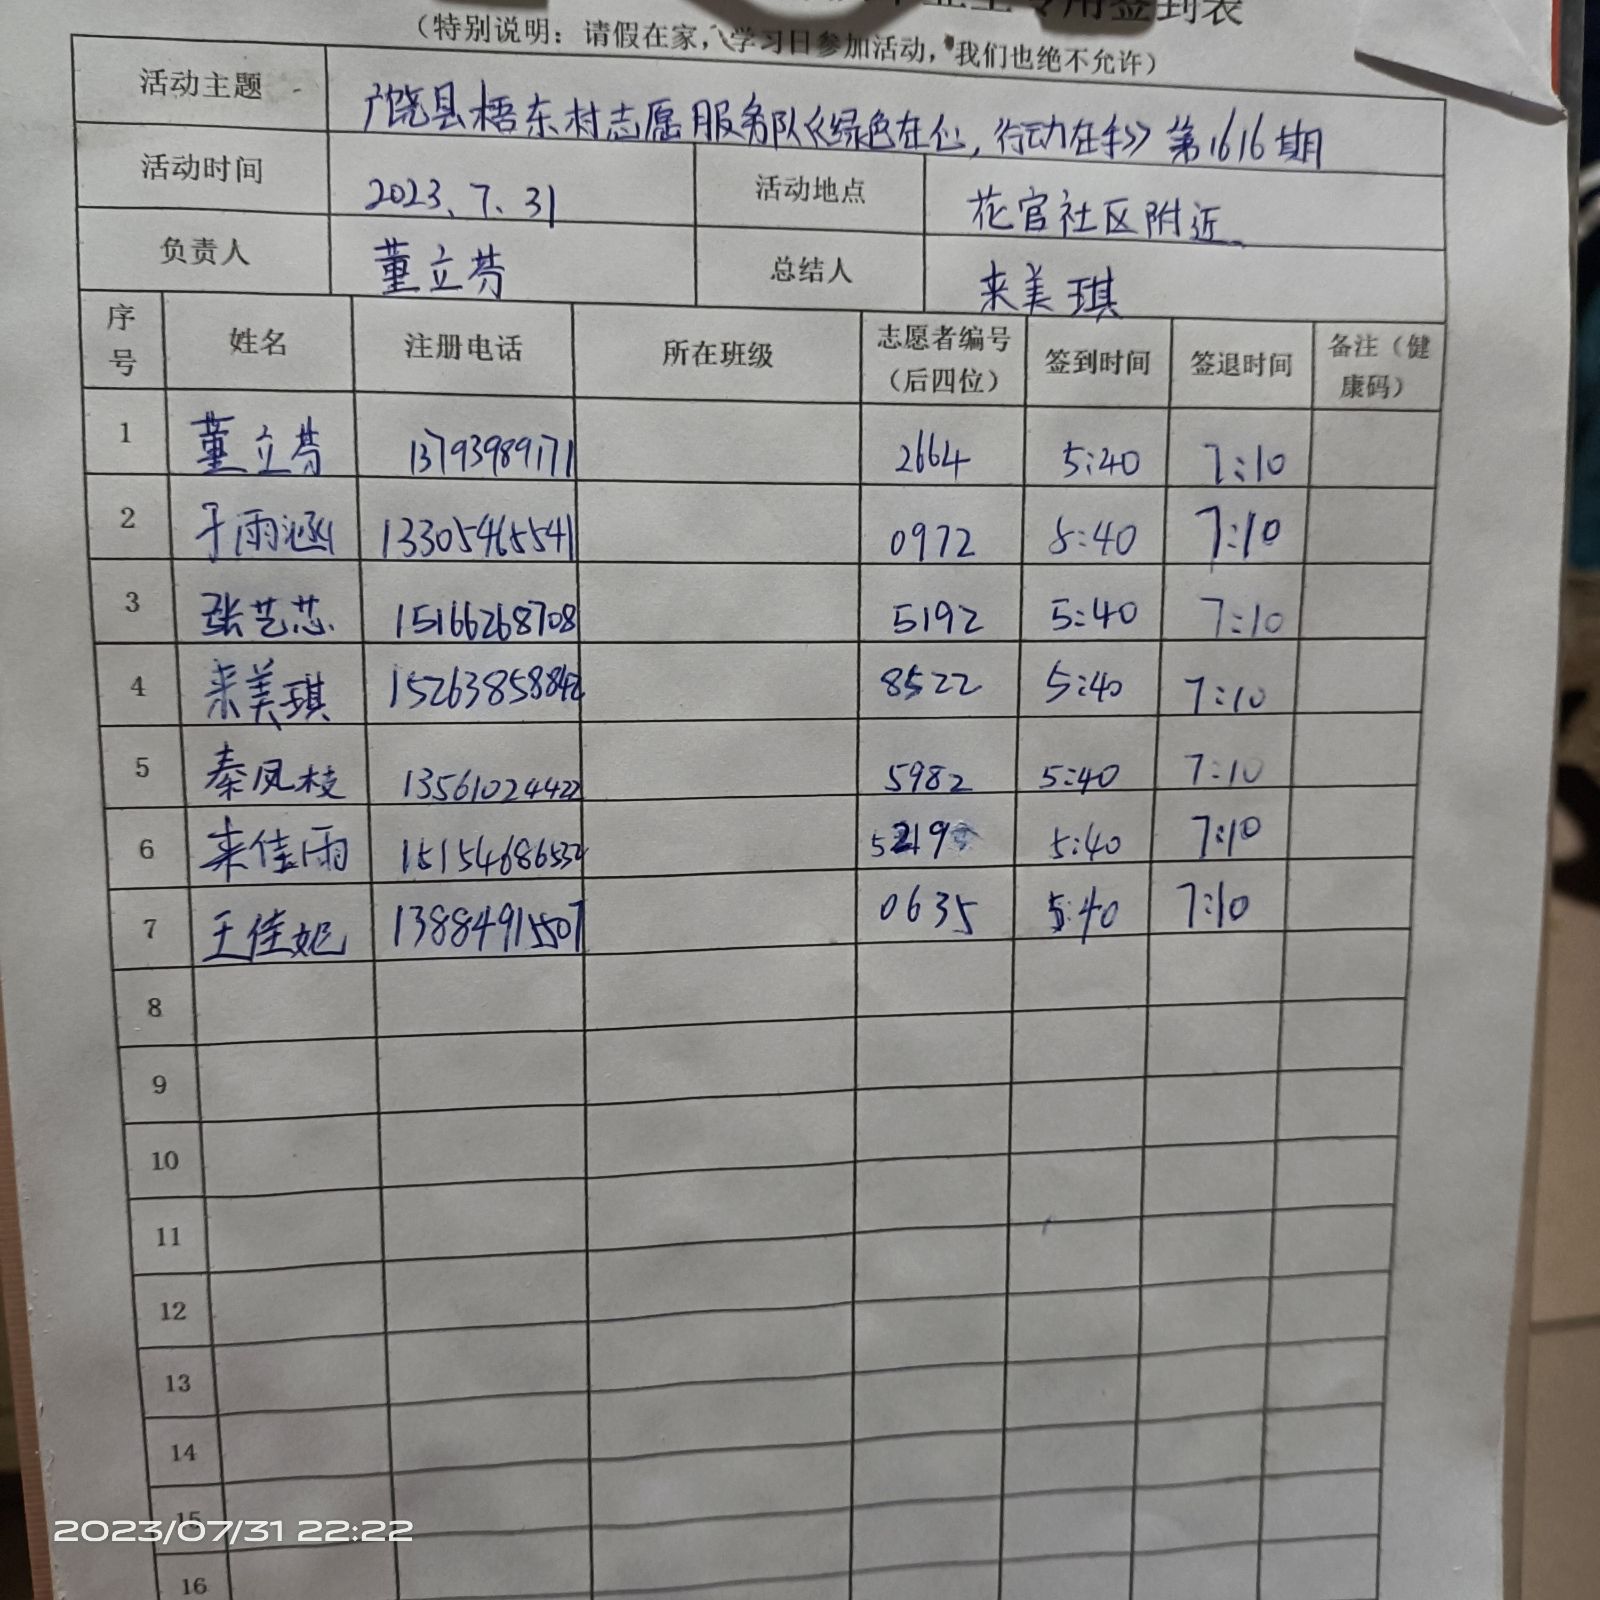 专用签到表
（特别说明：请假在家，学习日参加活动，我们也绝不允许）
活动主题 广饶县梧东村志愿服务队《绿色在心，行动在手》第1616期
活动时间 2023、7、31 活动地点 花官社区附近
负责人 董立芬 总结人 来美琪
序号 姓名 注册电话 所在班级 志愿者编号（后四位） 签到时间 签退时间 备注（健康码）
1 董立芬 13793989171 2664 5:40 7:10
2 于雨涵 13305465541 0972 5:40 7:10
3 张艺芯 15166268708 5192 5:40 7:10
4 来美琪 15263858842 8522 5:40 7:10
5 秦凤枝 13561024422 5982 5:40 7:10
6 来佳雨 15154686532 5:40 7:10
7 王佳妮 13884915507 0635 5:40 7:10
8
9
10
11
12
13
14
15
16
2023/07/31 22:22